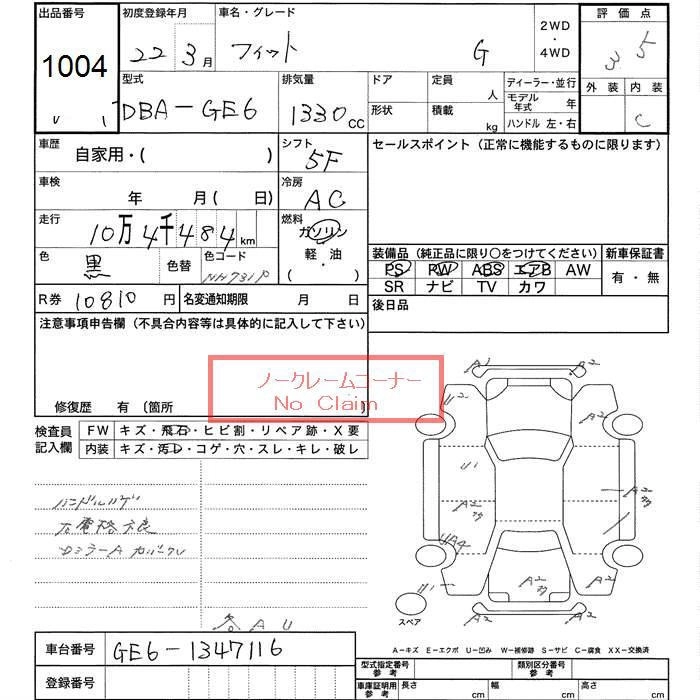 出品番号 初度登録年月 車名・グレード 2WD・4WD 評価点
1004 22 3月 フィット G 3 5
型式 排気量 ドア 定員 人 ディーラー・並行 外装 内装
DBA-GE6 1330cc 形状 積載 kg モデル年式 年 C
ハンドル 左・右
車歴 自家用・( ) シフト 5F セールスポイント(正常に機能するものに限ります)
車検 年 月( 日) 冷房 AC
走行 10万4千484km 燃料 ガソリン
軽・油
( ・ )
色 黒 色替 色コード NH731P
装備品(純正品に限り○をつけてください) 新車保証書
PS PW ABS エアB AW 有・無
SR ナビ TV カワ
R券 10810円 名変通知期限 月 日 後日品
注意事項申告欄(不具合内容等は具体的に記入して下さい)
ノークレームコーナー
No Claim
修復歴 有 〔箇所
検査員記入欄 FW キズ・飛石・ヒビ割・リペア跡・X要
内装 キズ・汚レ・コゲ・穴・スレ・キレ・破レ
ハンドルハゲ
右電格不良
DミラーA カバークレ
各AU
A1 A2
U2
U1 A2
A2
UA4
U1 A2 A2
A2 A2
スペア
A-キズ E-エクボ U-凹み W-補修跡 S-サビ C-腐食 XX-交換済
車台番号 GE6-1347116
登録番号
型式指定番号参考 類別区分番号参考
車庫証明用参考 長さ cm 幅 cm 高さ cm